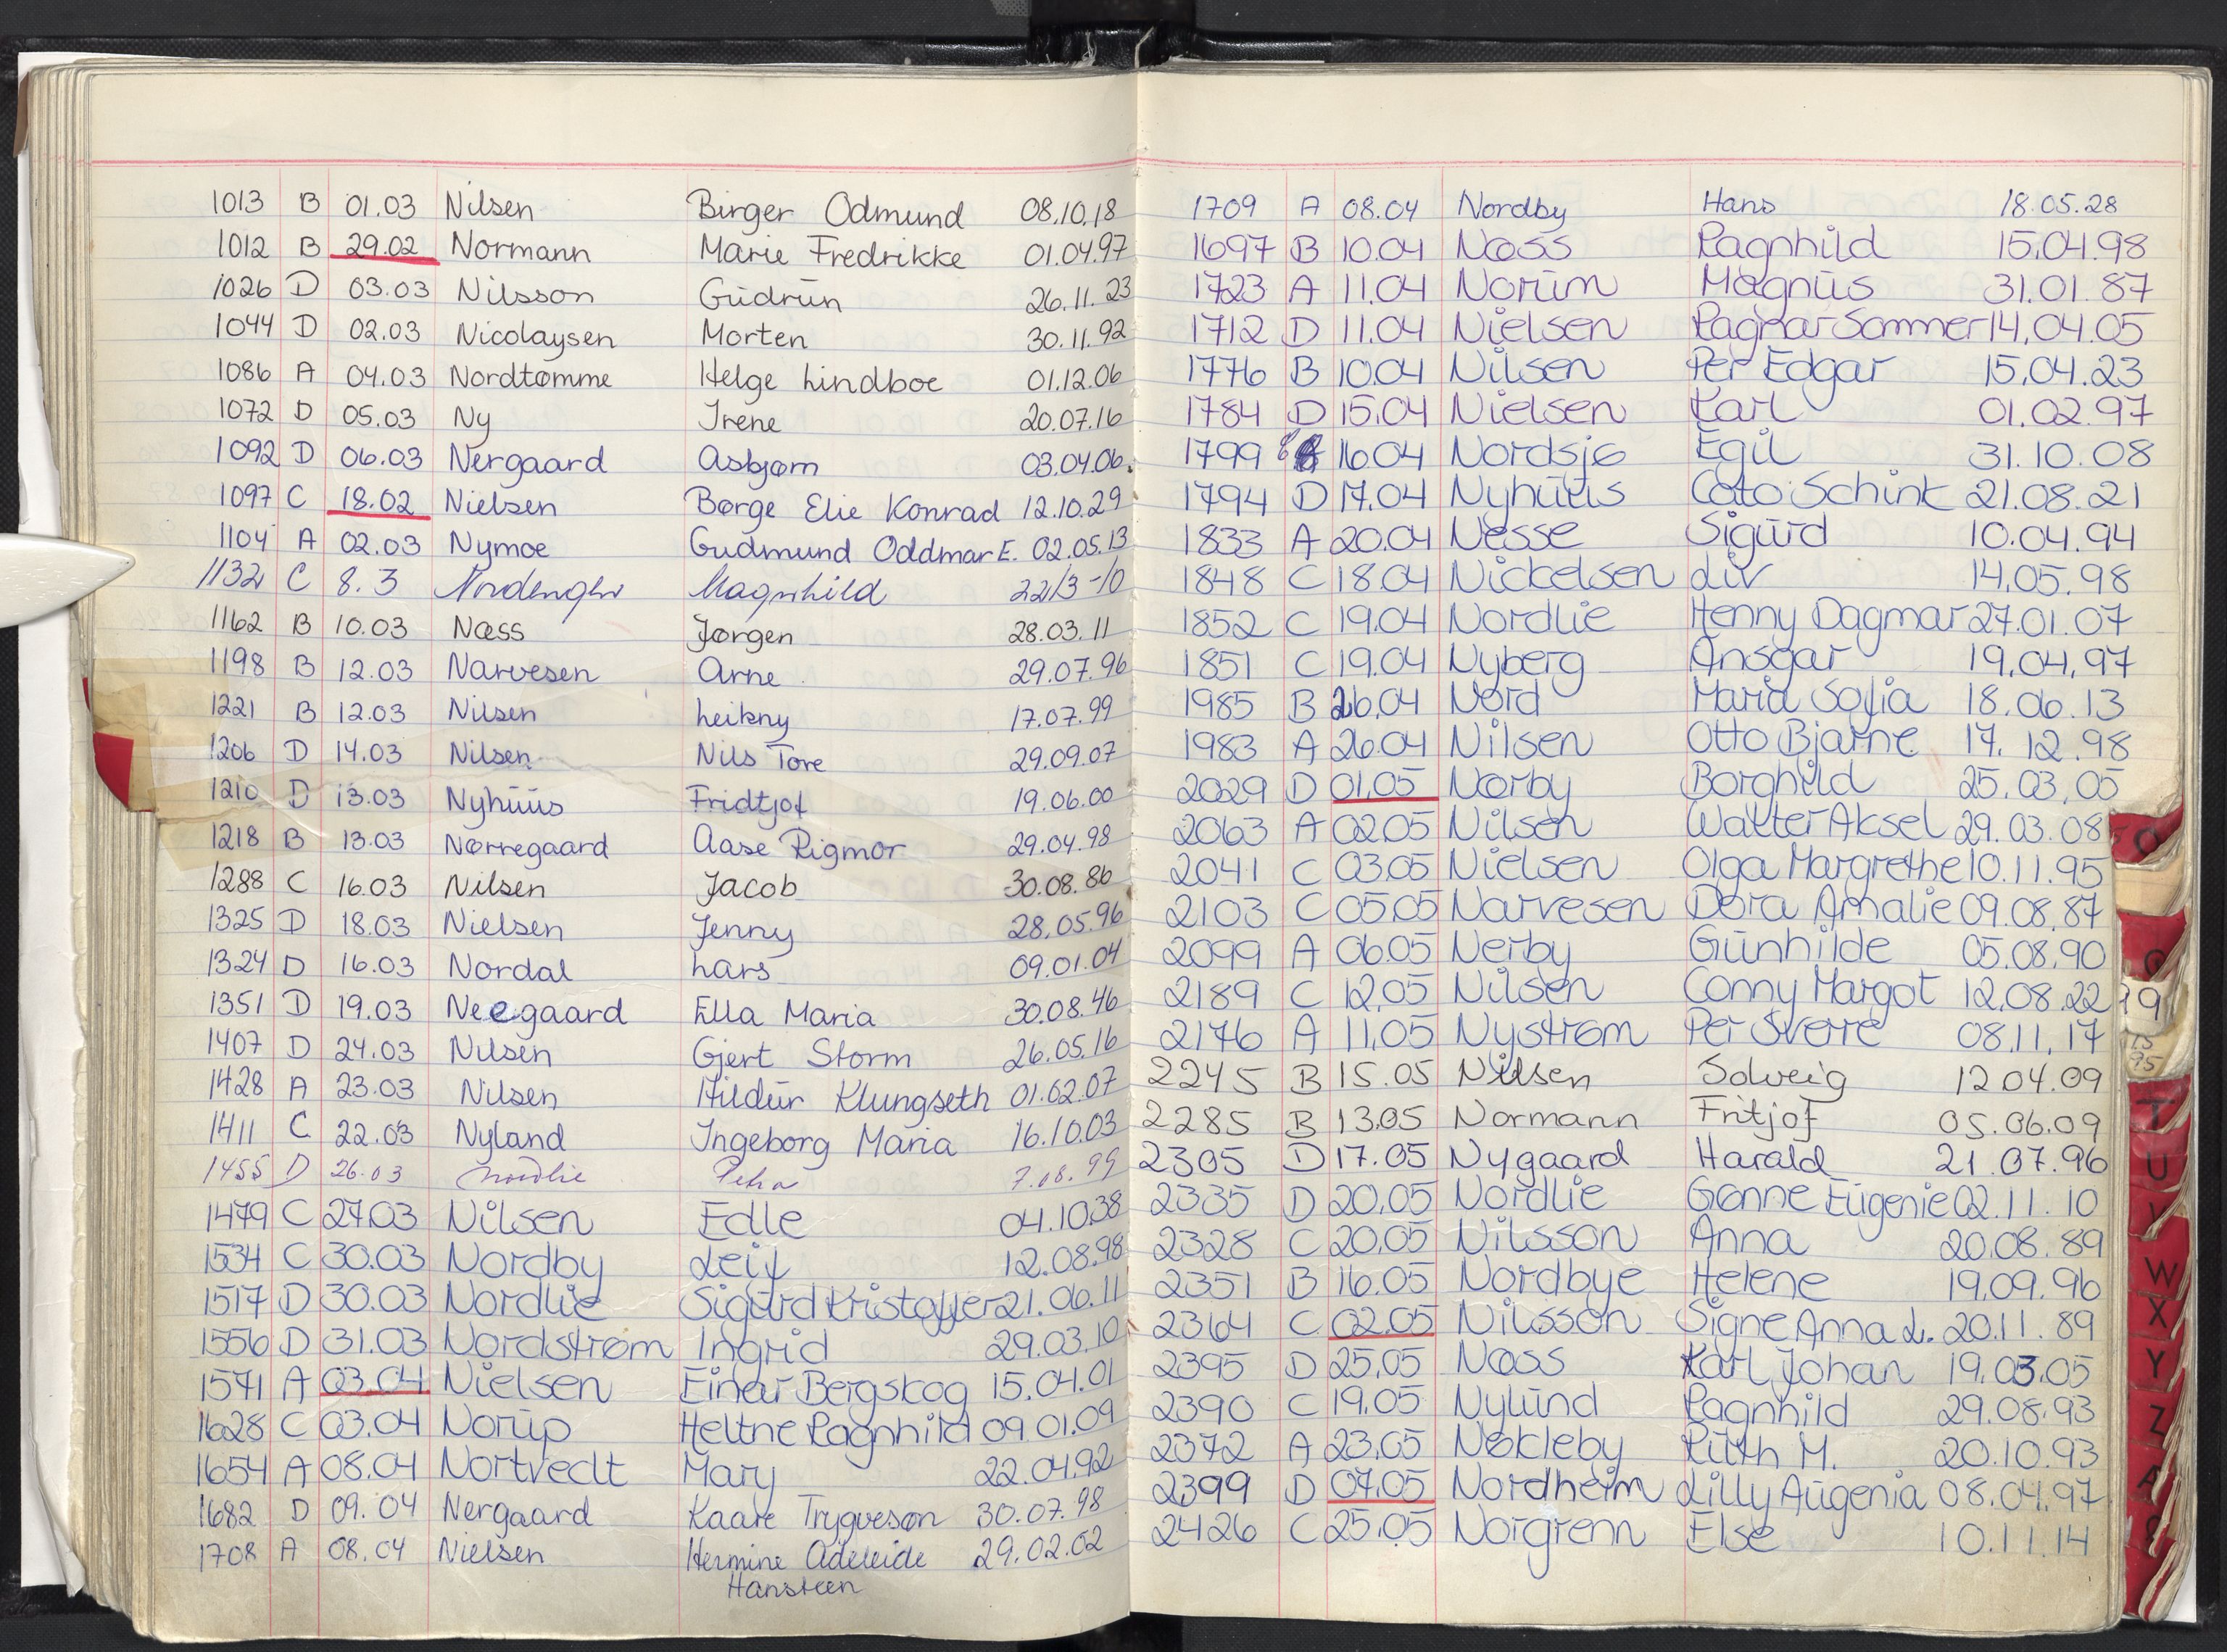 1013 B 01.03 Nilsen Birger Odmund 08.10.18
1012 B 29.02 Normann Marie Fredrikke 01.04.97
1026 D 03.03 Nilsson Gudrun 26.11.23
1044 D 02.03 Nicolaysen Morten 30.11.92
1086 A 04.03 Nordtømme Helge Lindboe 01.12.06
1072 D 05.03 Ny Irene 20.07.16
1092 D 06.03 Nergaard Asbjørn 03.04.06
1097 C 18.02 Nielsen Børge Elie Konrad 12.10.29
1104 A 02.03 Nymoe Gudmund Oddmar E. 02.05.13
1132 C 8.3 Magnhild 22/3-10
1162 B 10.03 Næss Jørgen 28.03.11
1198 B 12.03 Narvesen Arne 29.07.96
1221 B 12.03 Nilsen Leikny 17.07.99
1206 D 14.03 Nilsen Nils Tore 29.09.07
1210 D 13.03 Nyhuus Fridtjof 19.06.00
1218 B 13.03 Nørregaard Aase Rigmor 29.04.98
1288 C 16.03 Nilsen Jacob 30.08.86
1325 D 18.03 Nielsen Jenny 28.05.96
1324 D 16.03 Nordal Lars 09.01.04
1351 D 19.03 Neegaard Ella Maria 30.08.46
1407 D 24.03 Nilsen Gjert Storm 26.05.16
1428 A 23.03 Nilsen Hildur Klungseth 01.02.07
1411 C 22.03 Nyland Ingeborg Maria 16.10.03
1455 D 26.03 Nordlie Petra 7.08.99
1479 C 27.03 Nilsen Edle 04.10.38
1534 C 30.03 Nordby Leif 12.08.98
1517 D 30.03 Nordlie Sigurd Kristoffer 21.06.11
1556 D 31.03 Nordstrøm Ingrid 29.03.10
1571 A 03.04 Nielsen Einar Bergskog 15.04.01
1628 C 03.04 Norup Heltne Ragnhild 09.01.09
1654 A 08.04 Nortvedt Mary 22.04.92
1682 D 09.04 Nergaard Kaare Trygveson 30.07.98
1708 A 08.04 Nielsen Hermine Adeleide 29.02.02
Hansteen
1709 A 08.04 Nordby Hans 18.05.28
1697 B 10.04 Næss Ragnhild 15.04.98
1723 A 11.04 Norum Magnus 31.01.87
1712 D 11.04 Nielsen Ragnar Sommer 14.04.05
1776 B 10.04 Nilsen Per Edgar 15.04.23
1784 D 15.04 Nielsen Karl 01.02.97
1799 16.04 Nordsjø Egil 31.10.08
1794 D 17.04 Nyhuus Cato Schink 21.08.21
1833 A 20.04 Nesse Sigurd 10.04.94
1848 C 18.04 Nickelsen Liv 14.05.98
1852 C 19.04 Nordlie Henny Dagmar 27.01.07
1851 C 19.04 Nyberg Ansgar 19.04.97
1985 B 26.04 Nord Maria Sofia 18.06.13
1983 A 26.04 Nilsen Otto Bjarne 17.12.98
2029 D 01.05 Nørby Borghild 25.03.05
2063 A 02.05 Nilsen Walter Aksel 29.03.08
2041 C 03.05 Nielsen Olga Margrethe 10.11.95
2103 C 05.05 Narvesen Dora Amalie 09.08.87
2099 A 06.05 Nerby Gunhilde 05.08.90
2189 C 12.05 Nilsen Conny Margot 12.08.22
2176 A 11.05 Nystrøm Per Sverre 08.11.17
2245 B 15.05 Nilsen Solveig 12.04.09
2285 B 13.05 Normann Fritjof 05.06.09
2305 D 17.05 Nygaard Harald 21.07.96
2335 D 20.05 Nordlie Grønne Eugenie 02.11.10
2328 C 20.05 Nilsson Anna 20.08.89
2351 B 16.05 Nordbye Helene 19.09.96
2364 C 02.05 Nilsson Signe Anna L. 20.11.89
2395 D 25.05 Næss Karl Johan 19.03.05
2390 C 19.05 Nylund Ragnhild 29.08.93
2372 A 23.05 Nøkleby Ruth M. 20.10.93
2399 D 07.05 Nordheim Lilly Augenia 08.04.97
2426 C 25.05 Norgrenn Else 10.11.14
O
T
U
V
W
X
Y
Z